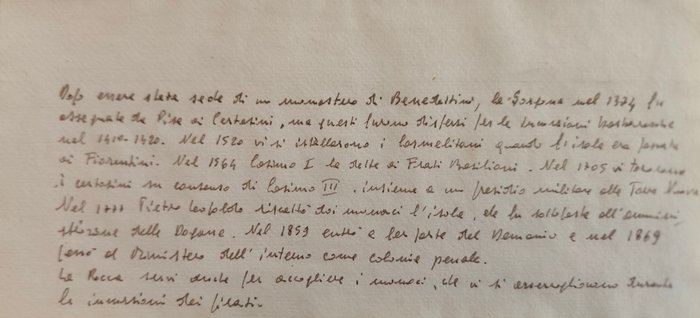 Dopo essere stata sede di un monastero di Benedettini, la Gorgona nel 1374 fu
assegnata da Pisa ai Certosini, ma questi furono dispersi per le incursioni barbaresche
nel 1410-1420. Nel 1520 vi si istallarono i Carmelitani quando l'isola era passata
ai Fiorentini. Nel 1564 Cosimo I la dette ai Frati Basiliani. Nel 1705 vi tornarono
i certosini su consenso di Cosimo III, insieme a un presidio militare alla Torre Nuova
Nel 1777 Pietro Leopoldo riscattò dai monaci l'isola, che fu sottoposta all'ammini
strazione delle Dogane. Nel 1859 entrò a far parte del Demanio e nel 1869
passò al Ministero dell'interno come colonia penale.
La Rocca servì anche per accogliere i monaci, che vi si asserragliavano durante
le incursioni dei pirati.